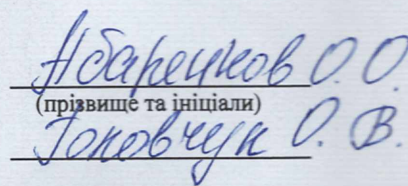 Абаренков О. О.
(прізвище та ініціали)
Головчук О. В.